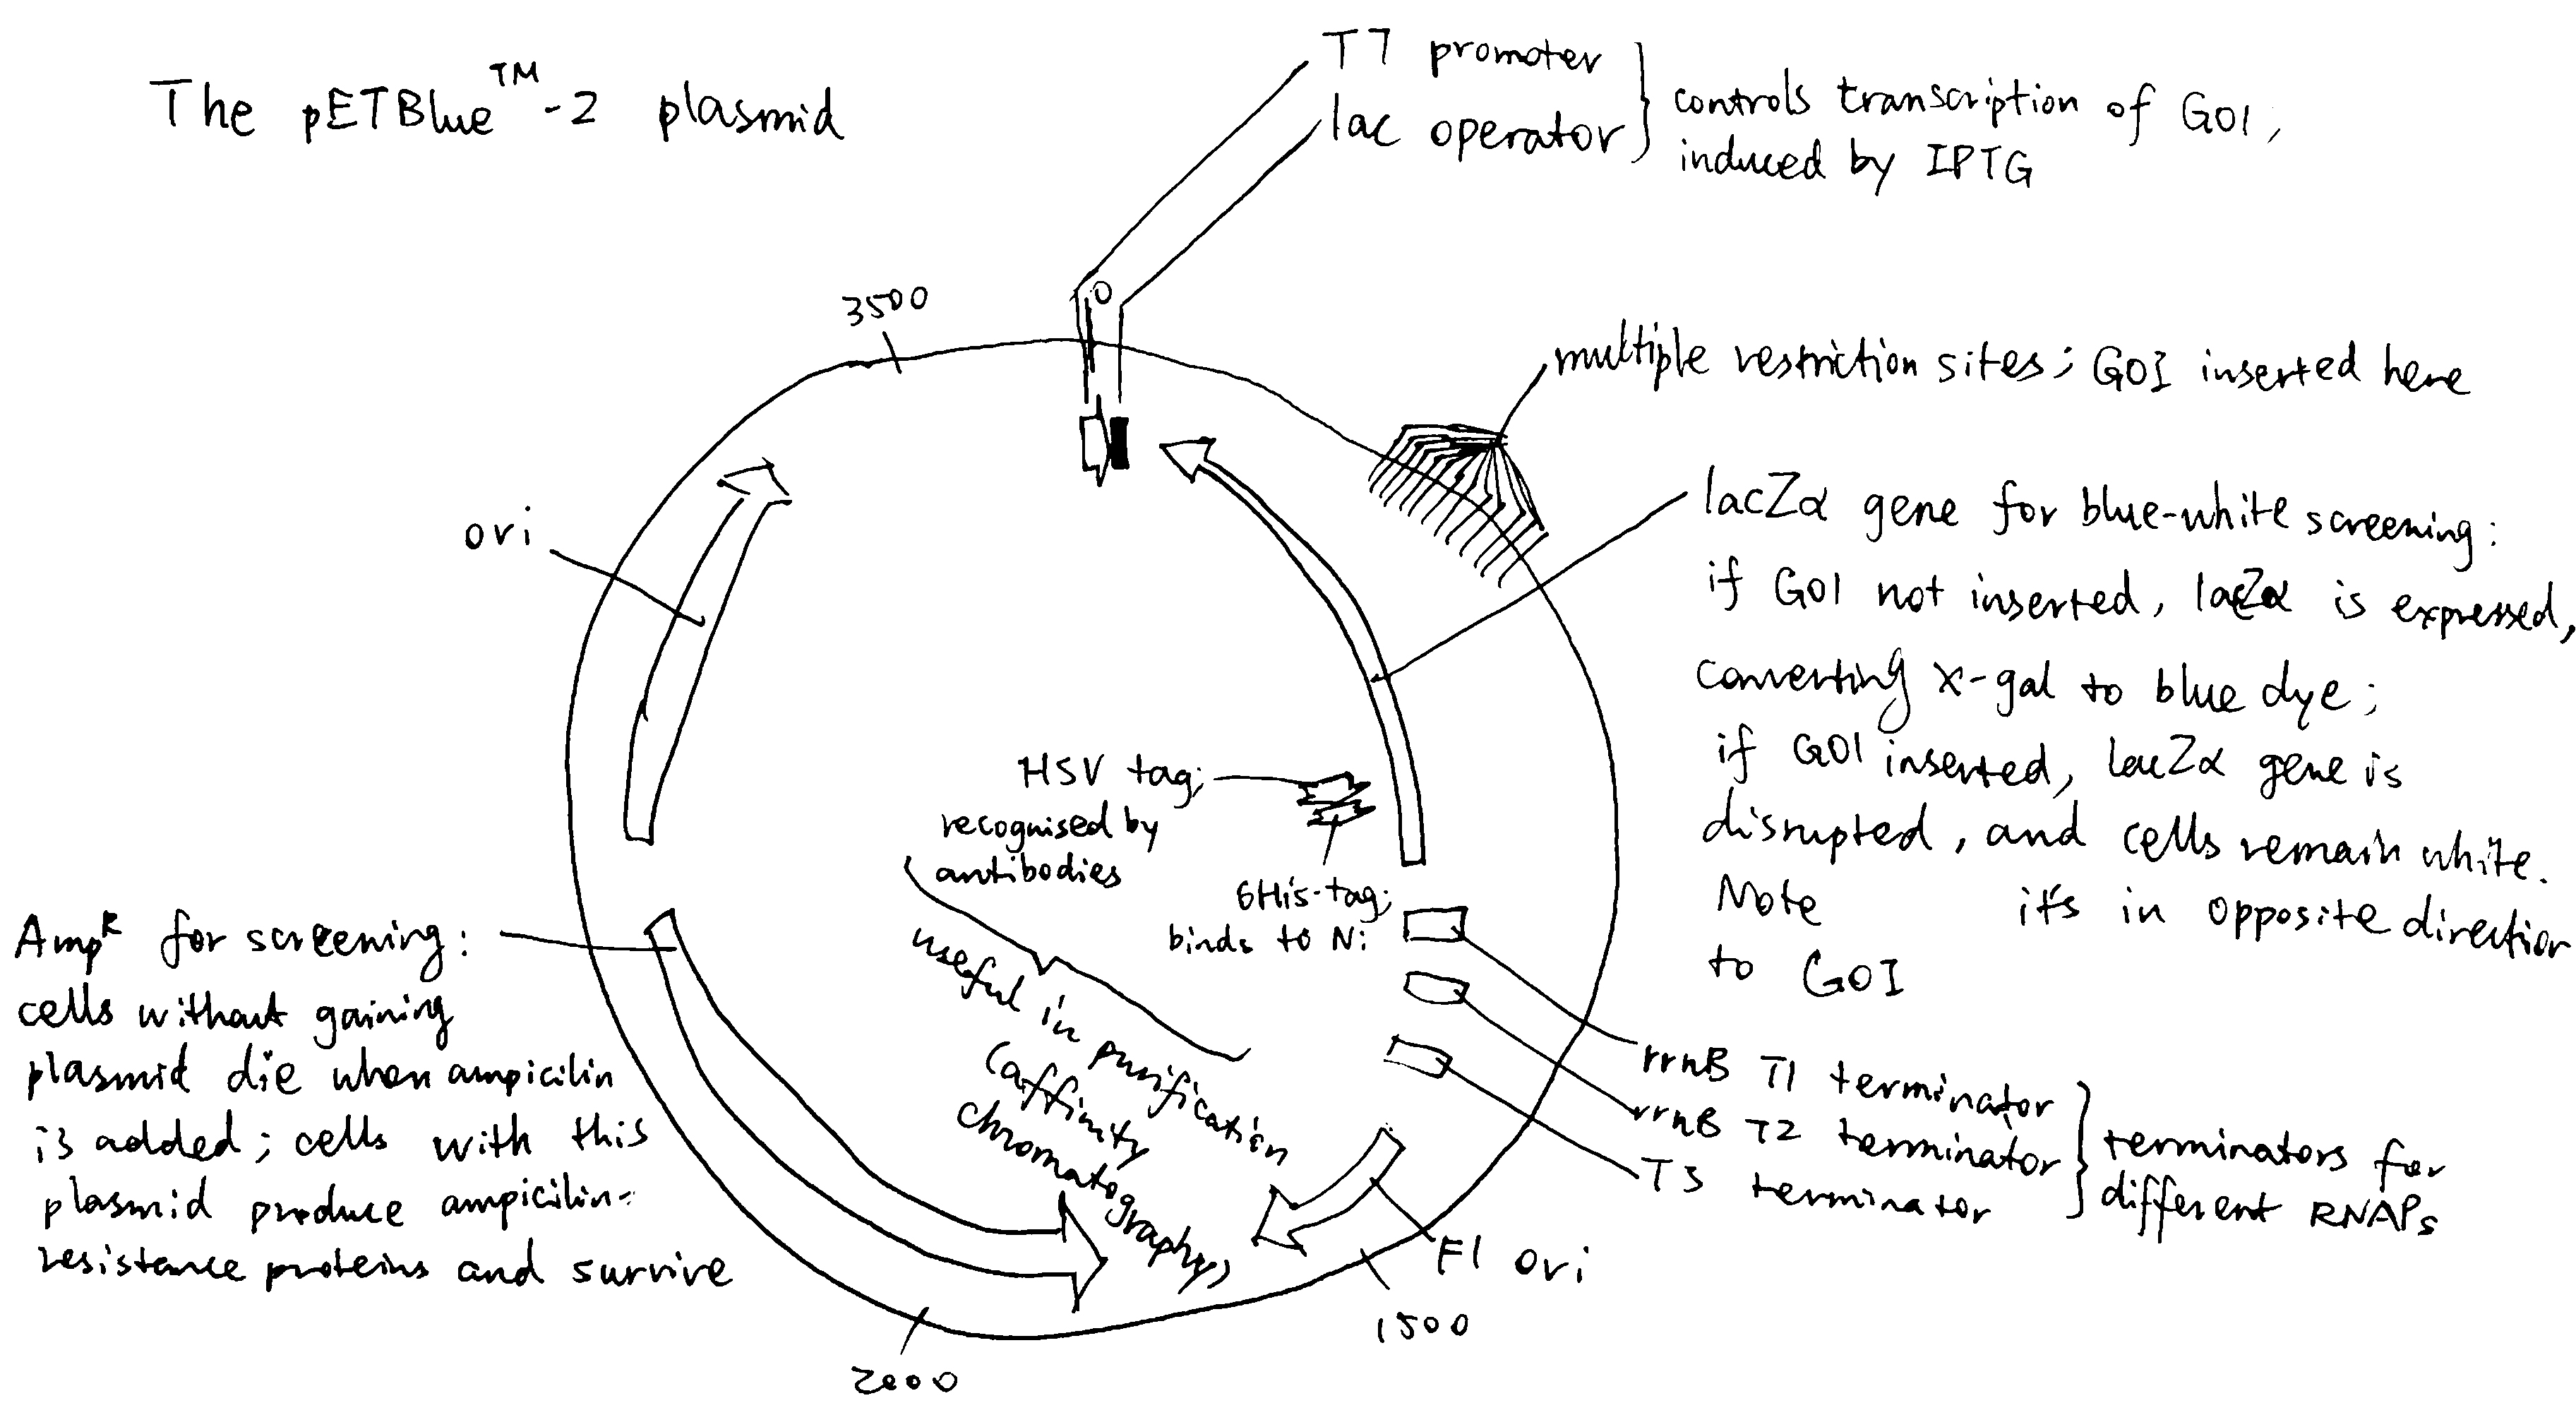 The pETBlue™-2 plasmid
T7 promoter
lac operator
controls transcription of GOI,
induced by IPTG
3500
multiple restriction sites; GOI inserted here
ori
lacZα gene for blue-white screening:
if GOI not inserted, lacZα is expressed,
converting x-gal to blue dye;
if GOI inserted, lacZα gene is
disrupted, and cells remain white.
Note it's in opposite direction
to GOI
HSV tag;
recognised by
antibodies
6His-tag;
binds to Ni
useful in purification
(affinity
chromatography)
AmpR for screening:
cells without gaining
plasmid die when ampicilin
is added; cells with this
plasmid produce ampicilin-
resistance proteins and survive
rrnB T1 terminator
rrnB T2 terminator
T3 terminator
terminators for
different RNAPs
F1 ori
1500
2000